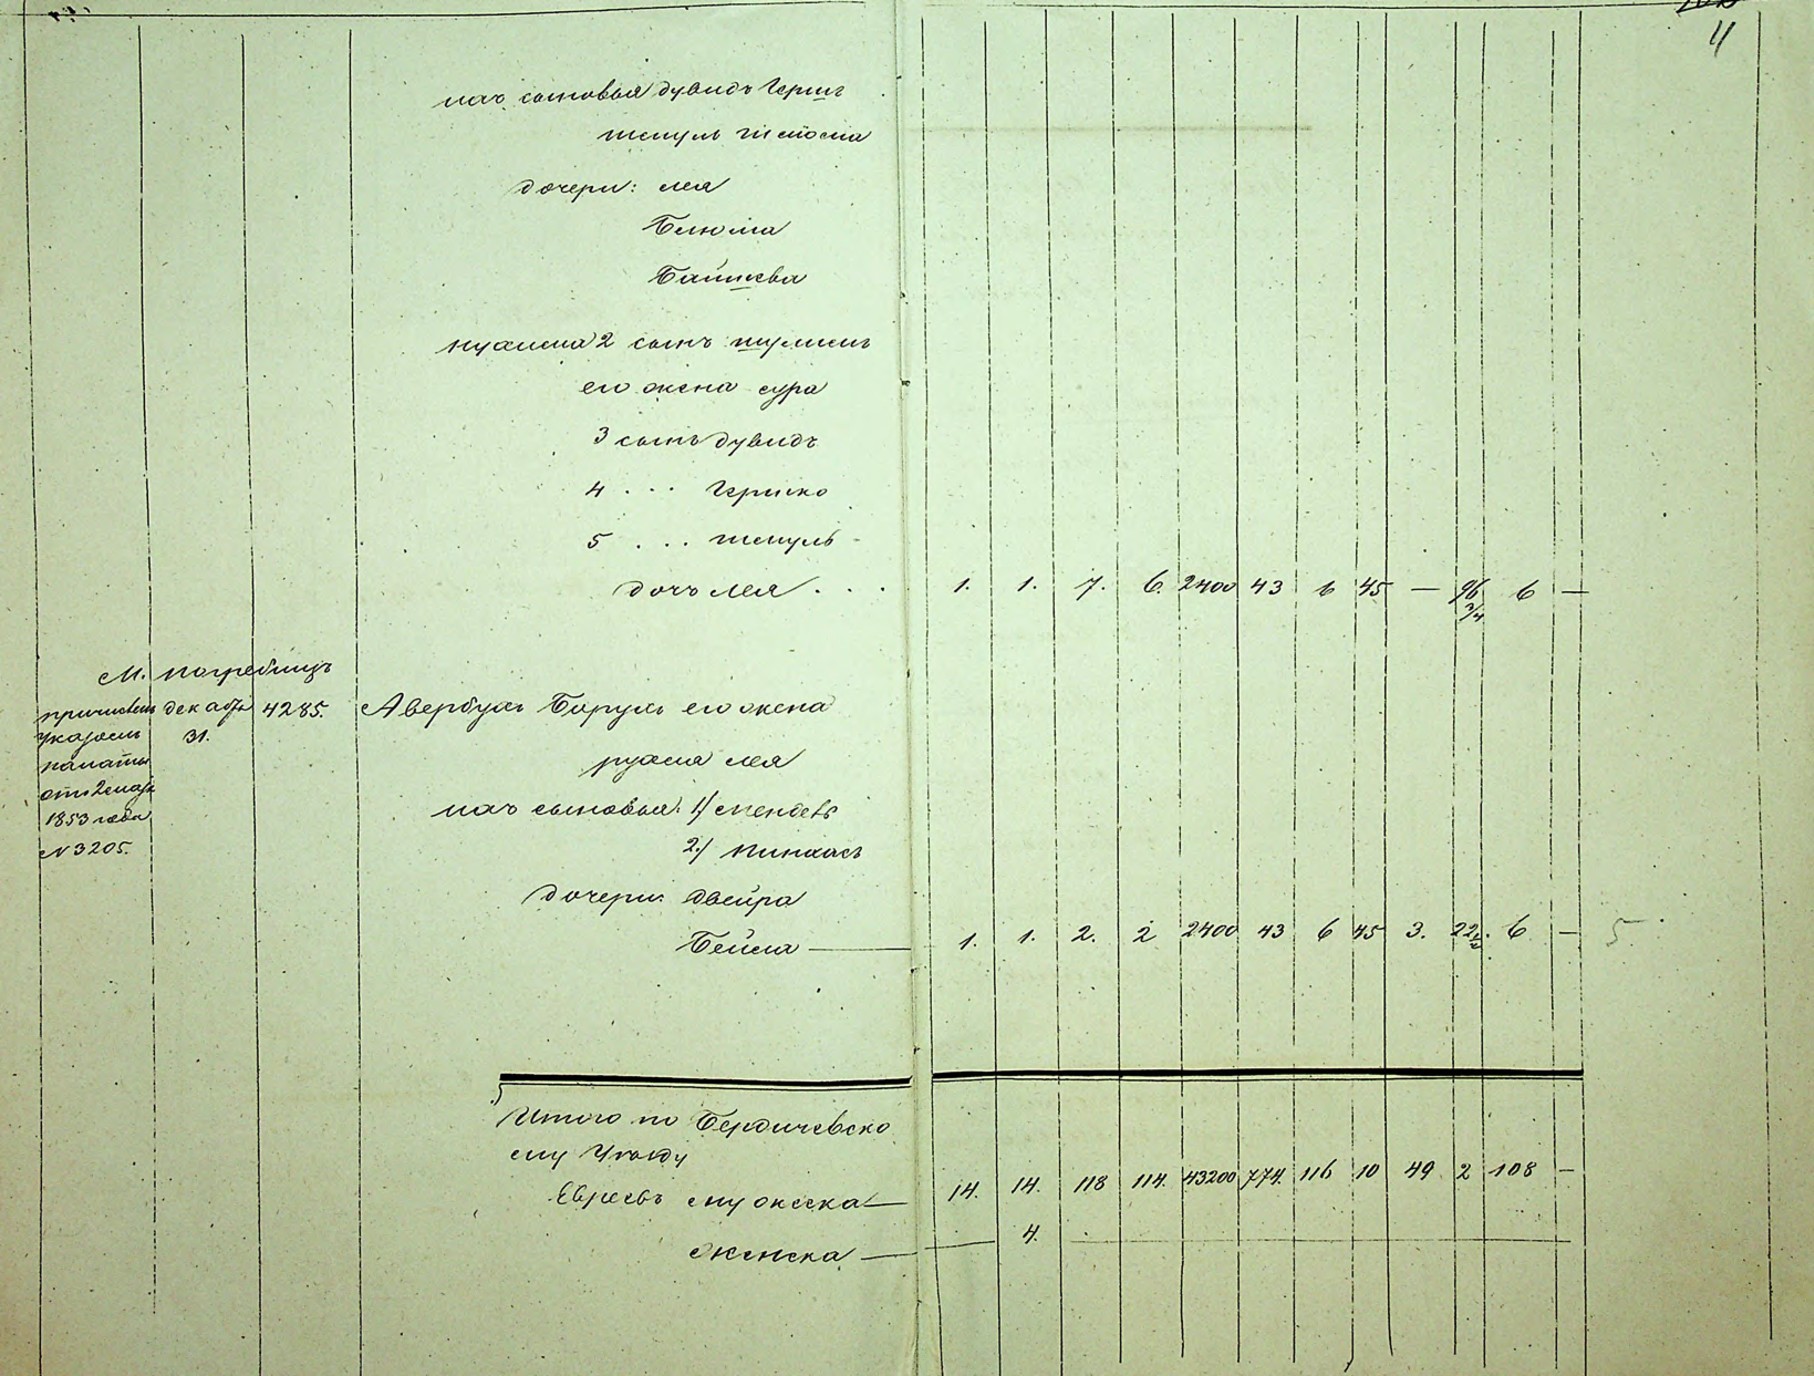 11
ихъ сыновья Дувидъ Герш
Шмуль
дочери: Лея
Блюма
Башева
Нухима 2 сынъ Шулимъ
его жена Сура
3 сынъ Дувидъ
4 . . . Гершко
5 . . . Шмуль
дочь Лея . . . 1. 1. 7. 6. 2400 43 6 45 — 96 3/4 6 —
М. Погребищъ
причислен декабря 4285. Авербухъ Борухъ его жена
указомъ 31.
Рухля Лея
палаты
от 2 мар
ихъ сыновья: 1/ Мендель
1853 года
№ 3205. 2./ Пинхасъ
дочери: Двейра
Бейла — 1. 1. 2. 2 2400 43 6 45 3. 22 1/2 6 — 5
Итого по Бердичевско
му Уѣзду
Евреевъ мужеска — 14. 14. 118 114. 43200 774. 116 10 49 2 108 —
женска — 4.